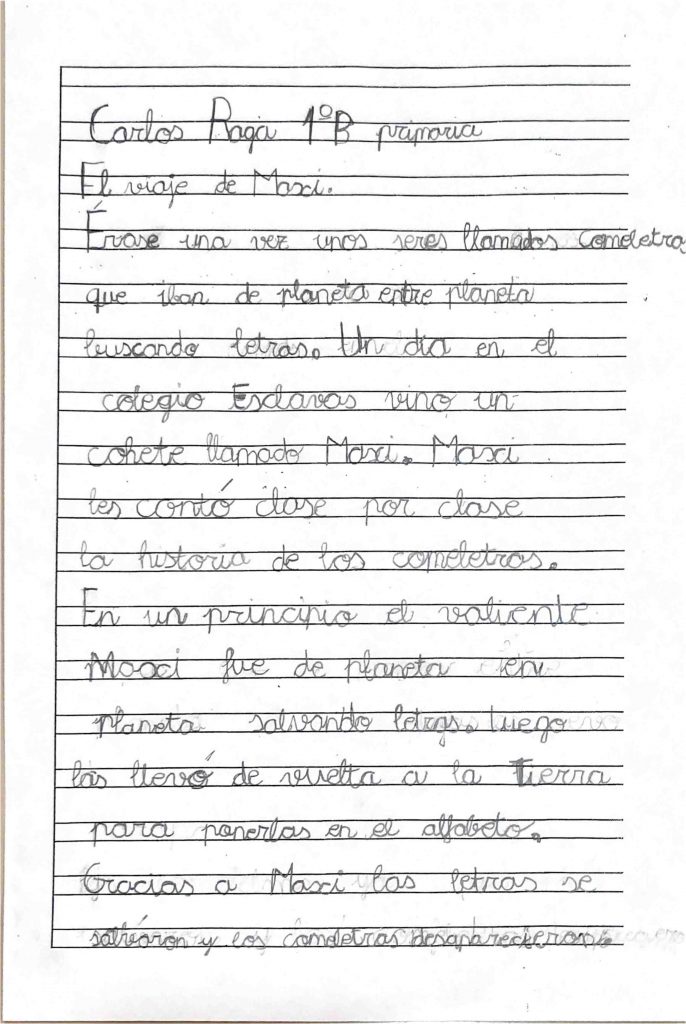 Carlos Raga 1ºB primaria
El viaje de Maxi.
Érase una vez unos seres llamados comeletra
que iban de planeta entre planeta
buscando letras. Un día en el
colegio Esclavas vino un
cohete llamado Maxi. Maxi
les contó clase por clase
la historia de los comeletras.
En un principio el valiente
Maxi fue de planeta en
planeta salvando letras. Luego
las llevó de vuelta a la Tierra
para ponerlas en el alfabeto.
Gracias a Maxi las letras se
salvaron y los comeletras desaparecieron.